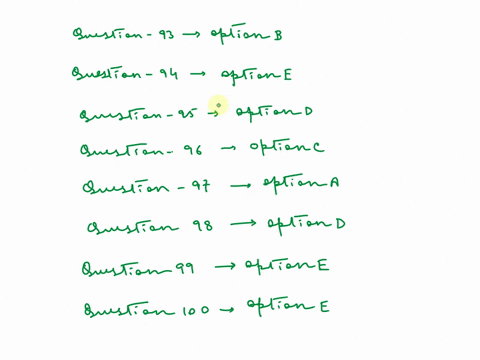 Question - 93 → option B
Question - 94 → option E
Question - 95 → option D
Question - 96 → option C
Question - 97 → option A
Question 98 → option D
Question 99 → option E
Question 100 → option E